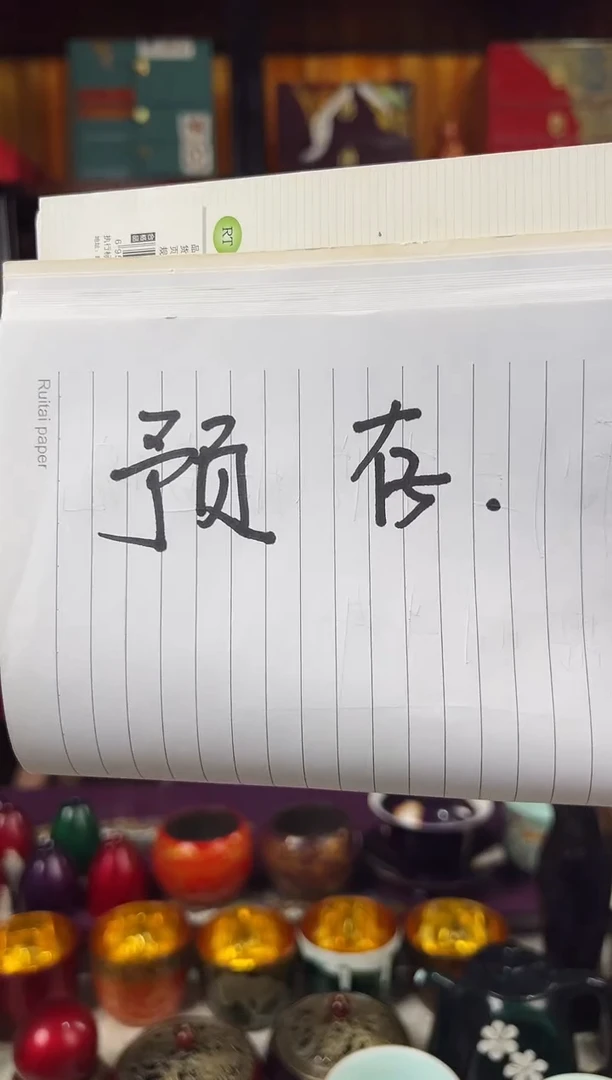 RT
Ruitai paper
预存.